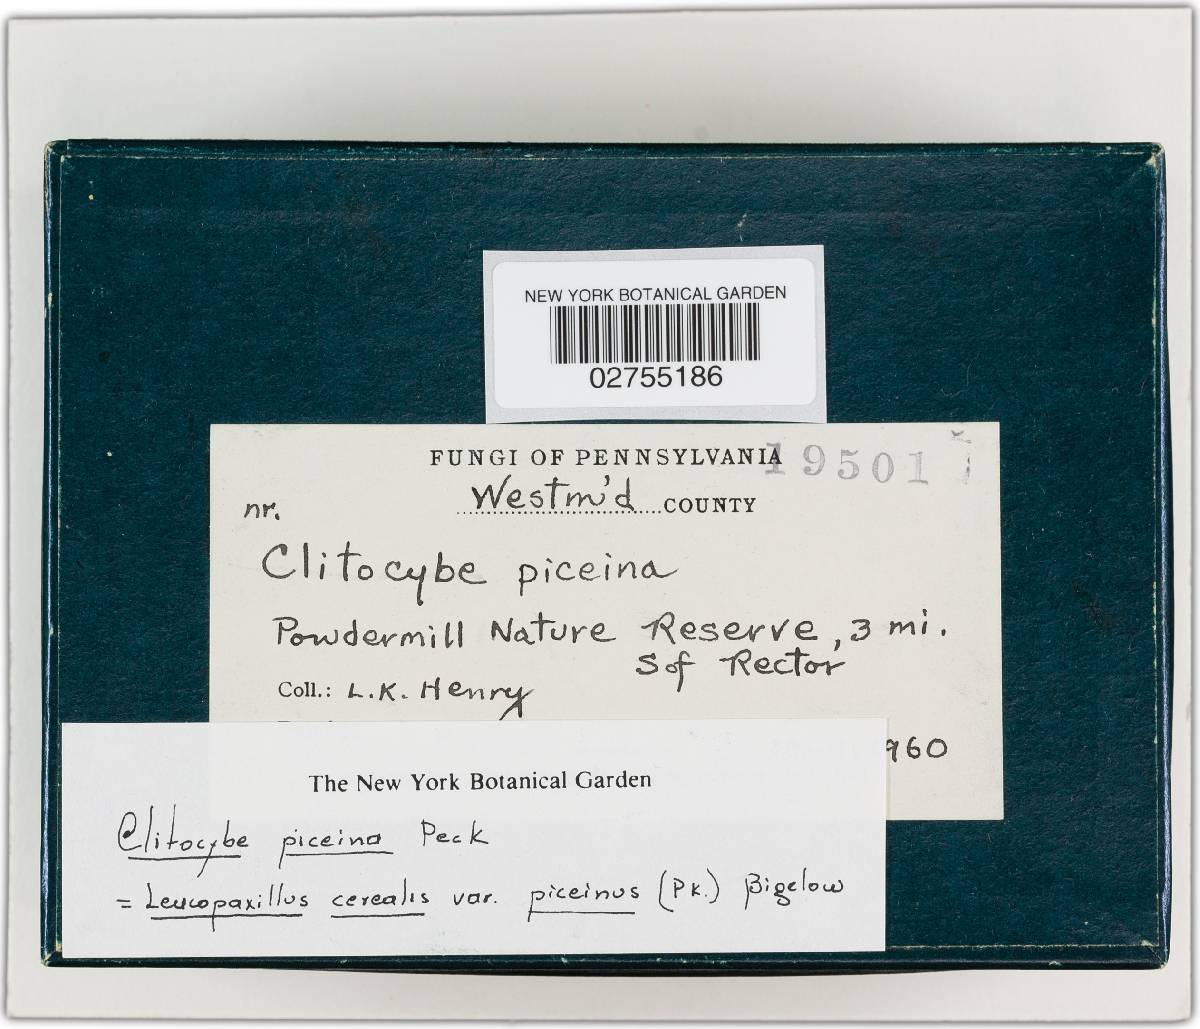 NEW YORK BOTANICAL GARDEN
02755186
FUNGI OF PENNSYLVANIA 19501
Westm'd COUNTY
nr.
Clitocybe piceina
Powdermill Nature Reserve, 3 mi.
S of Rector
Coll.: L.K. Henry
960
The New York Botanical Garden
Clitocybe piceina Peck
= Leucopaxillus cerealis var. piceinus (Pk.) Bigelow